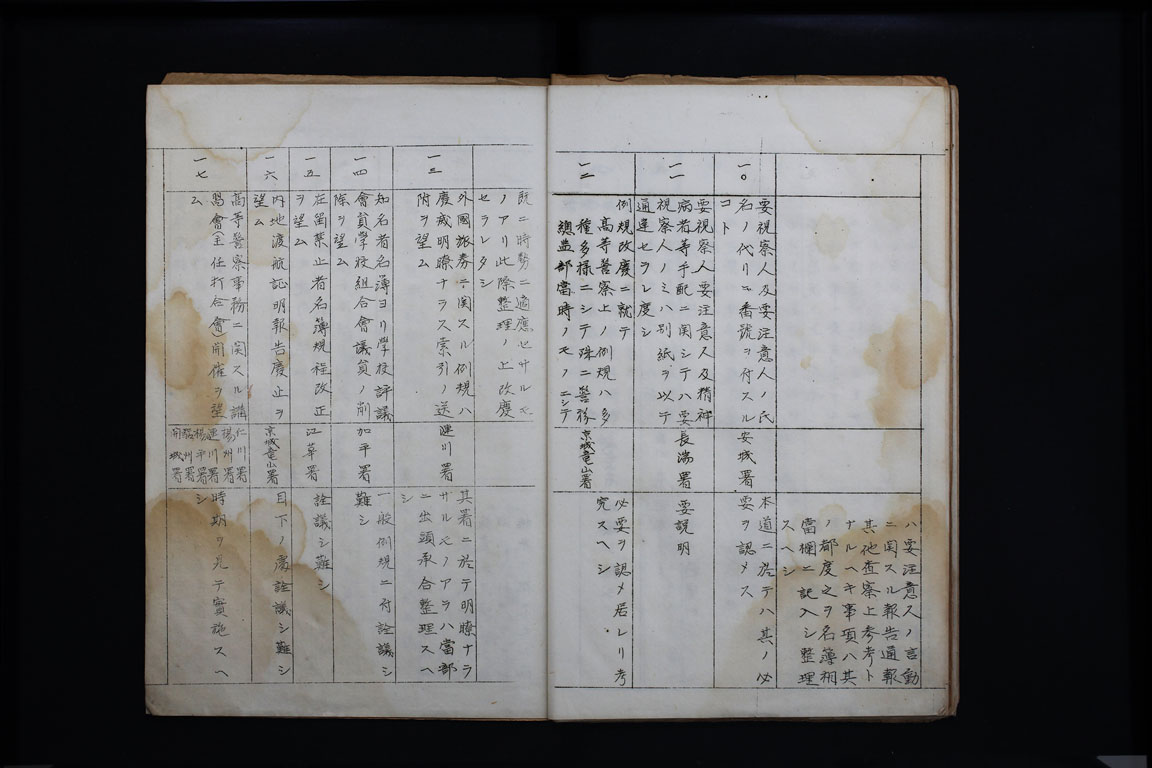 ハ要注意人ノ言動
ニ関スル報告通報
其他査察上参考ト
ナルヘキ事項ハ其
ノ都度之ヲ名簿相
當欄ニ記入シ整理
スヘシ
一〇
要視察人及要注意人ノ氏
名ノ代リニ番號ヲ付スル
コト
安城署
本道ニ於テハ其ノ必
要ヲ認メス
一一
要視察人要注意人及精神
病者等手配ニ関シテハ要
視察人ノミハ別紙ヲ以テ
通達セラレ度シ
長湍署
要説明
一二
例規改廢ニ就テ
高等警察上ノ例規ハ多
種多様ニシテ殊ニ警務
總監部當時ノモノニシテ
京城龍山署
必要ヲ認メ居レリ考
究スヘシ
既ニ時勢ニ適應セサルモ
ノアリ此際整理ノ上改廢
セラレタシ
一三
外國旅券ニ関スル例規ハ
廢或明瞭ナラス索引ノ送
附ヲ望ム
漣川署
其署ニ於テ明瞭ナラ
サルモノアラハ當部
ニ出頭承合整理スヘ
シ
一四
知名者名簿ヨリ學校評議
會員學校組合會議員ノ削
除ヲ望ム
加平署
一般例規ニ付詮議シ
難シ
一五
在留禁止者名簿規程改正
ヲ望ム
江華署
詮議シ難シ
一六
内地渡航証明報告廢止ヲ
望ム
京城龍山署
目下ノ處詮議シ難シ
一七
高等警察事務ニ関スル講
習會(主任打合會)開催ヲ望
ム
仁川署
楊州署
漣川署
楊平署
坡州署
開城署
時期ヲ見テ實施スヘ
シ